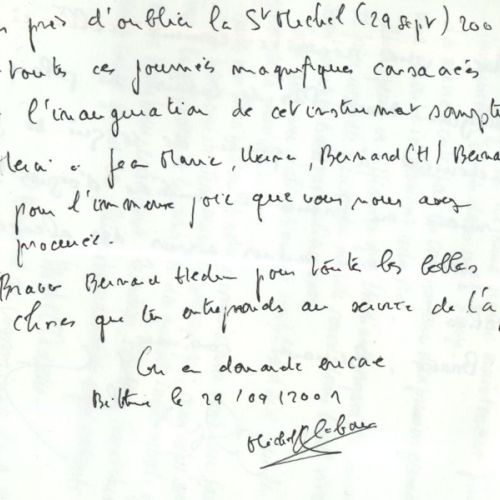 près d'oublier la St Michel (29 sept) 200
toutes ces journées magnifiques consacrées
l'inauguration de cet instrument sompt
Merci à Jean Marie, , Bernard (H) Berna
pour l'immense joie que vous nous avez
procurée.
Bravo Bernard pour toute les belles
choses que tu entreprends au service de l'
On en demande encore
le 29/09/2001